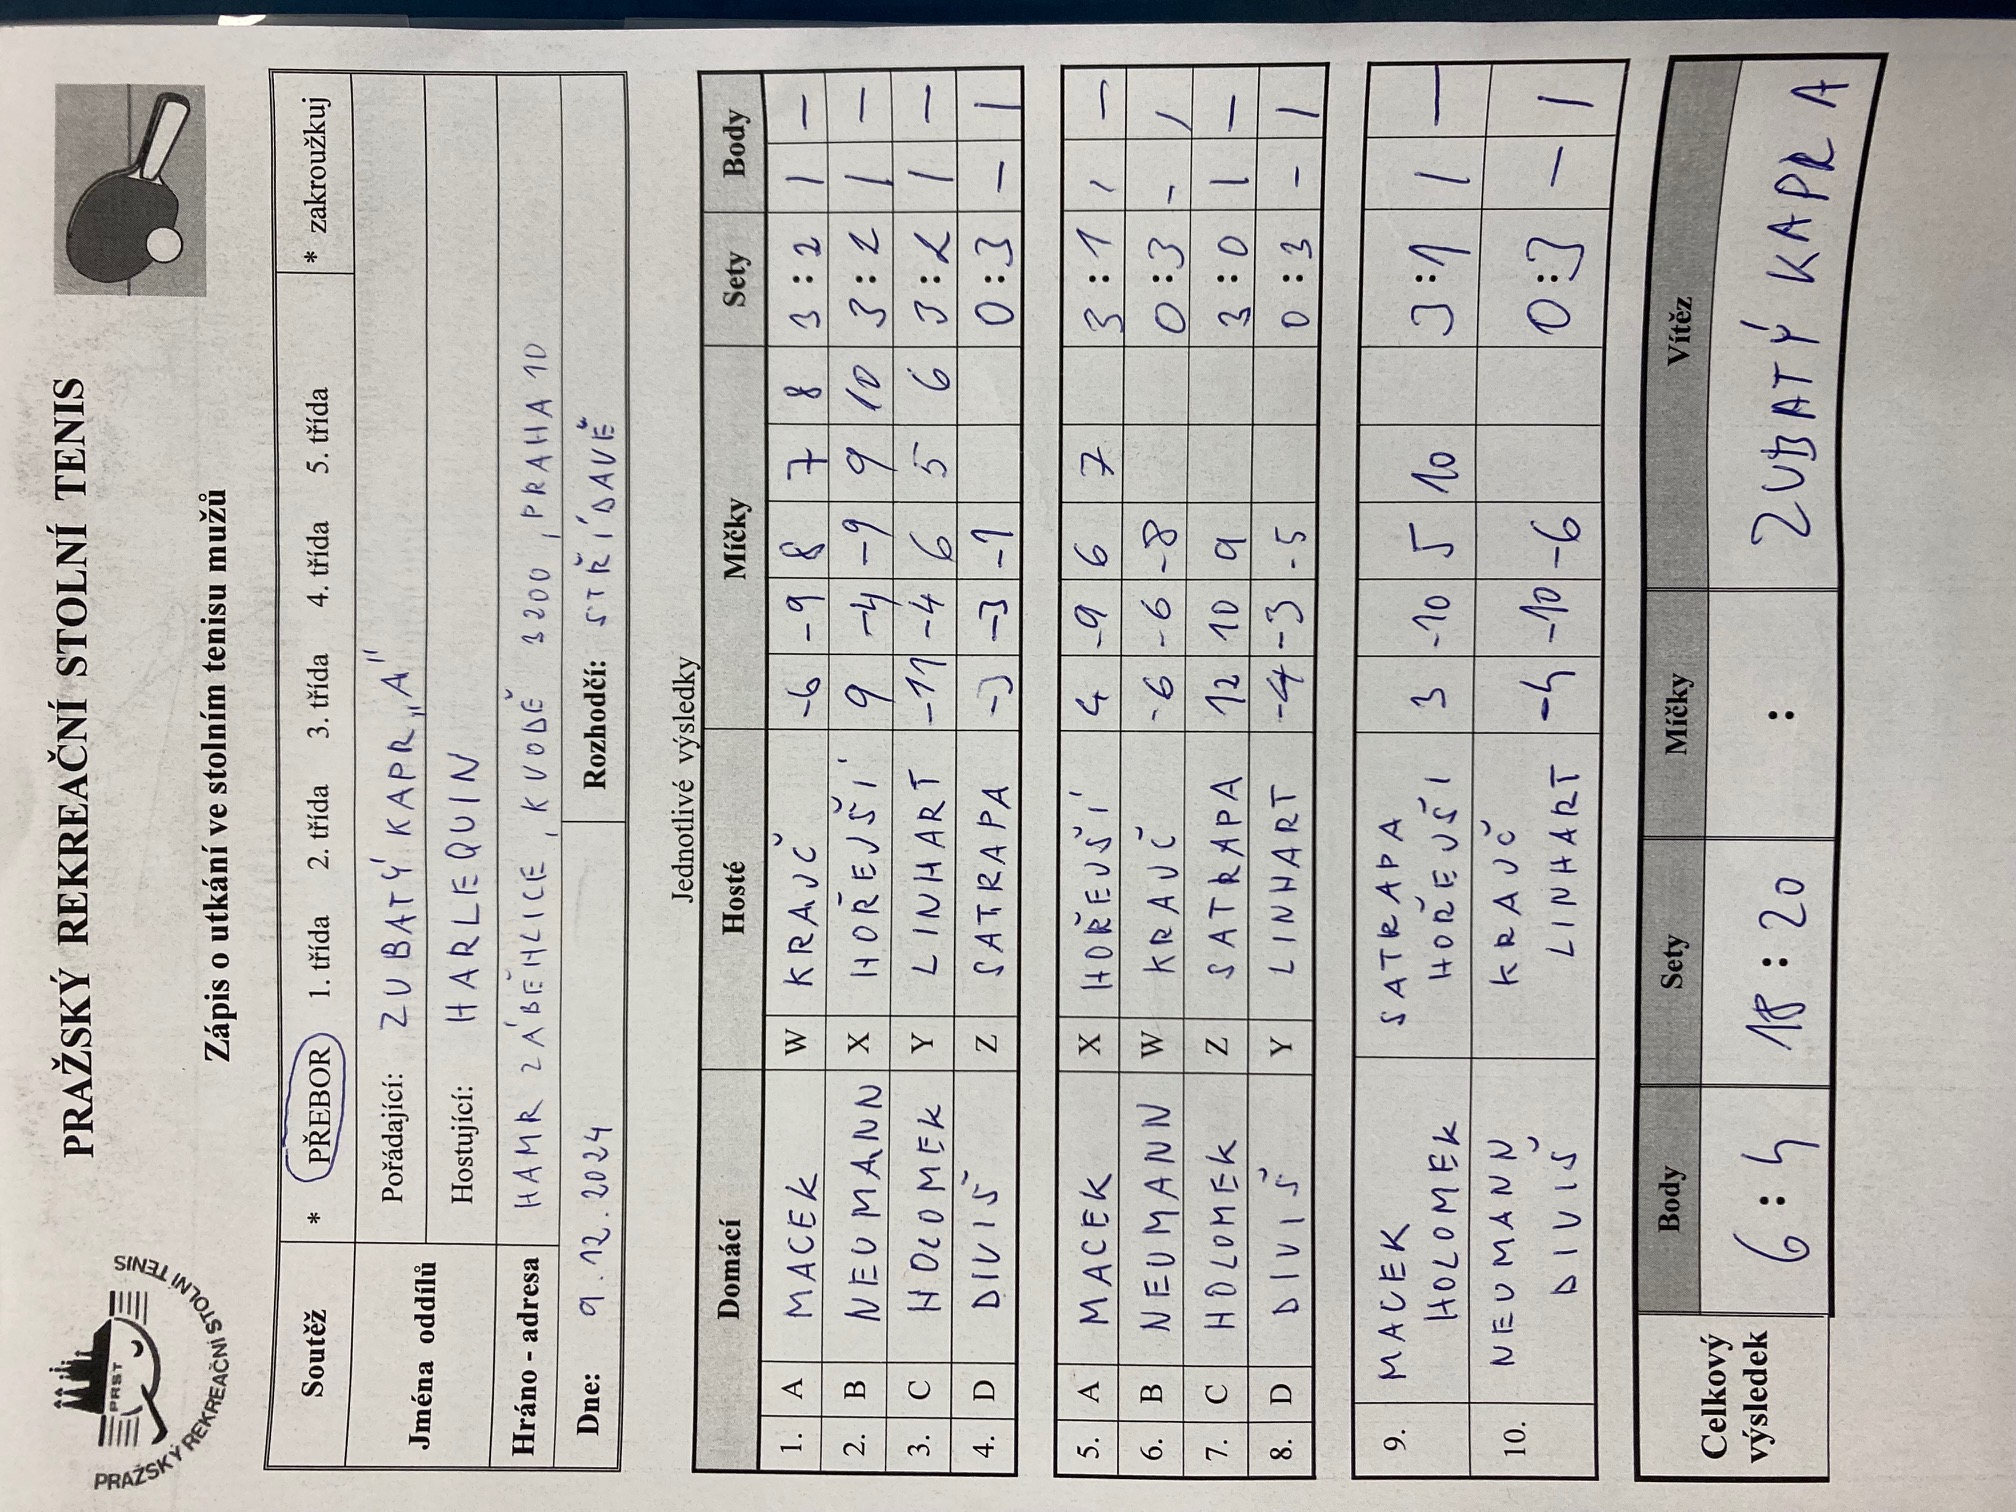 PRAŽSKÝ REKREAČNÍ STOLNÍ TENIS
PRST
PRAŽSKÝ REKREAČNÍ STOLNÍ TENIS
Zápis o utkání ve stolním tenisu mužů
Soutěž * PŘEBOR 1. třída 2. třída 3. třída 4. třída 5. třída * zakroužkuj
Jména oddílů Pořádající: ZUBATÝ KAPR „A"
Hostující: HARLEQUIN
Hráno - adresa HAMR ZÁBĚHLICE, K VODĚ 3200, PRAHA 10
Dne: 9.12.2024 Rozhodčí: STŘÍDAVĚ
Jednotlivé výsledky
Domácí Hosté Míčky Sety Body
1. A MACEK W KRAVČ -6 -9 8 7 8 3:2 1 –
2. B NEUMANN X HOŘEJŠÍ 9 -4 -9 9 10 3:2 1 –
3. C HOLOMEK Y LINHART -11 -4 6 5 6 3:2 1 –
4. D DIVIŠ Z SATRAPA -3 -3 -9 0:3 – 1
5. A MACEK X HOŘEJŠÍ 4 -9 6 7 3:1 1 –
6. B NEUMANN W KRAVČ -6 -6 -8 0:3 – 1
7. C HOLOMEK Z SATRAPA 12 10 9 3:0 1 –
8. D DIVIŠ Y LINHART -4 -3 -5 0:3 – 1
9. MACEK SATRAPA 3 -10 5 10 3:1 1 –
HOLOMEK HOŘEJŠÍ
10. NEUMANN KRAVČ -4 -10 -6 0:3 – 1
DIVIŠ LINHART
Celkový výsledek Body Sety Míčky Vítěz
6:4 18:20 : ZUBATÝ KAPR A